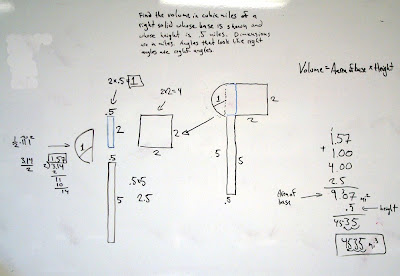 Find the volume in cubic miles of a
right solid whose base is shown and
whose height is .5 miles. Dimensions
are in miles. Angles that look like right
angles are right angles.
Volume = Area of base x Height
2 x .5 = 1
2x2=4
.5
1
2
2
2
1
2
2
5
5
.5
½π1²
3.14
2
1.57
2 3.14
2
11
10
14
1
.5
5
.5x5
2.5
1
1.57
+ 1.00
4.00
2.5
Area of
base
9.07 mi²
.5 ← height
4535
4.535 mi³